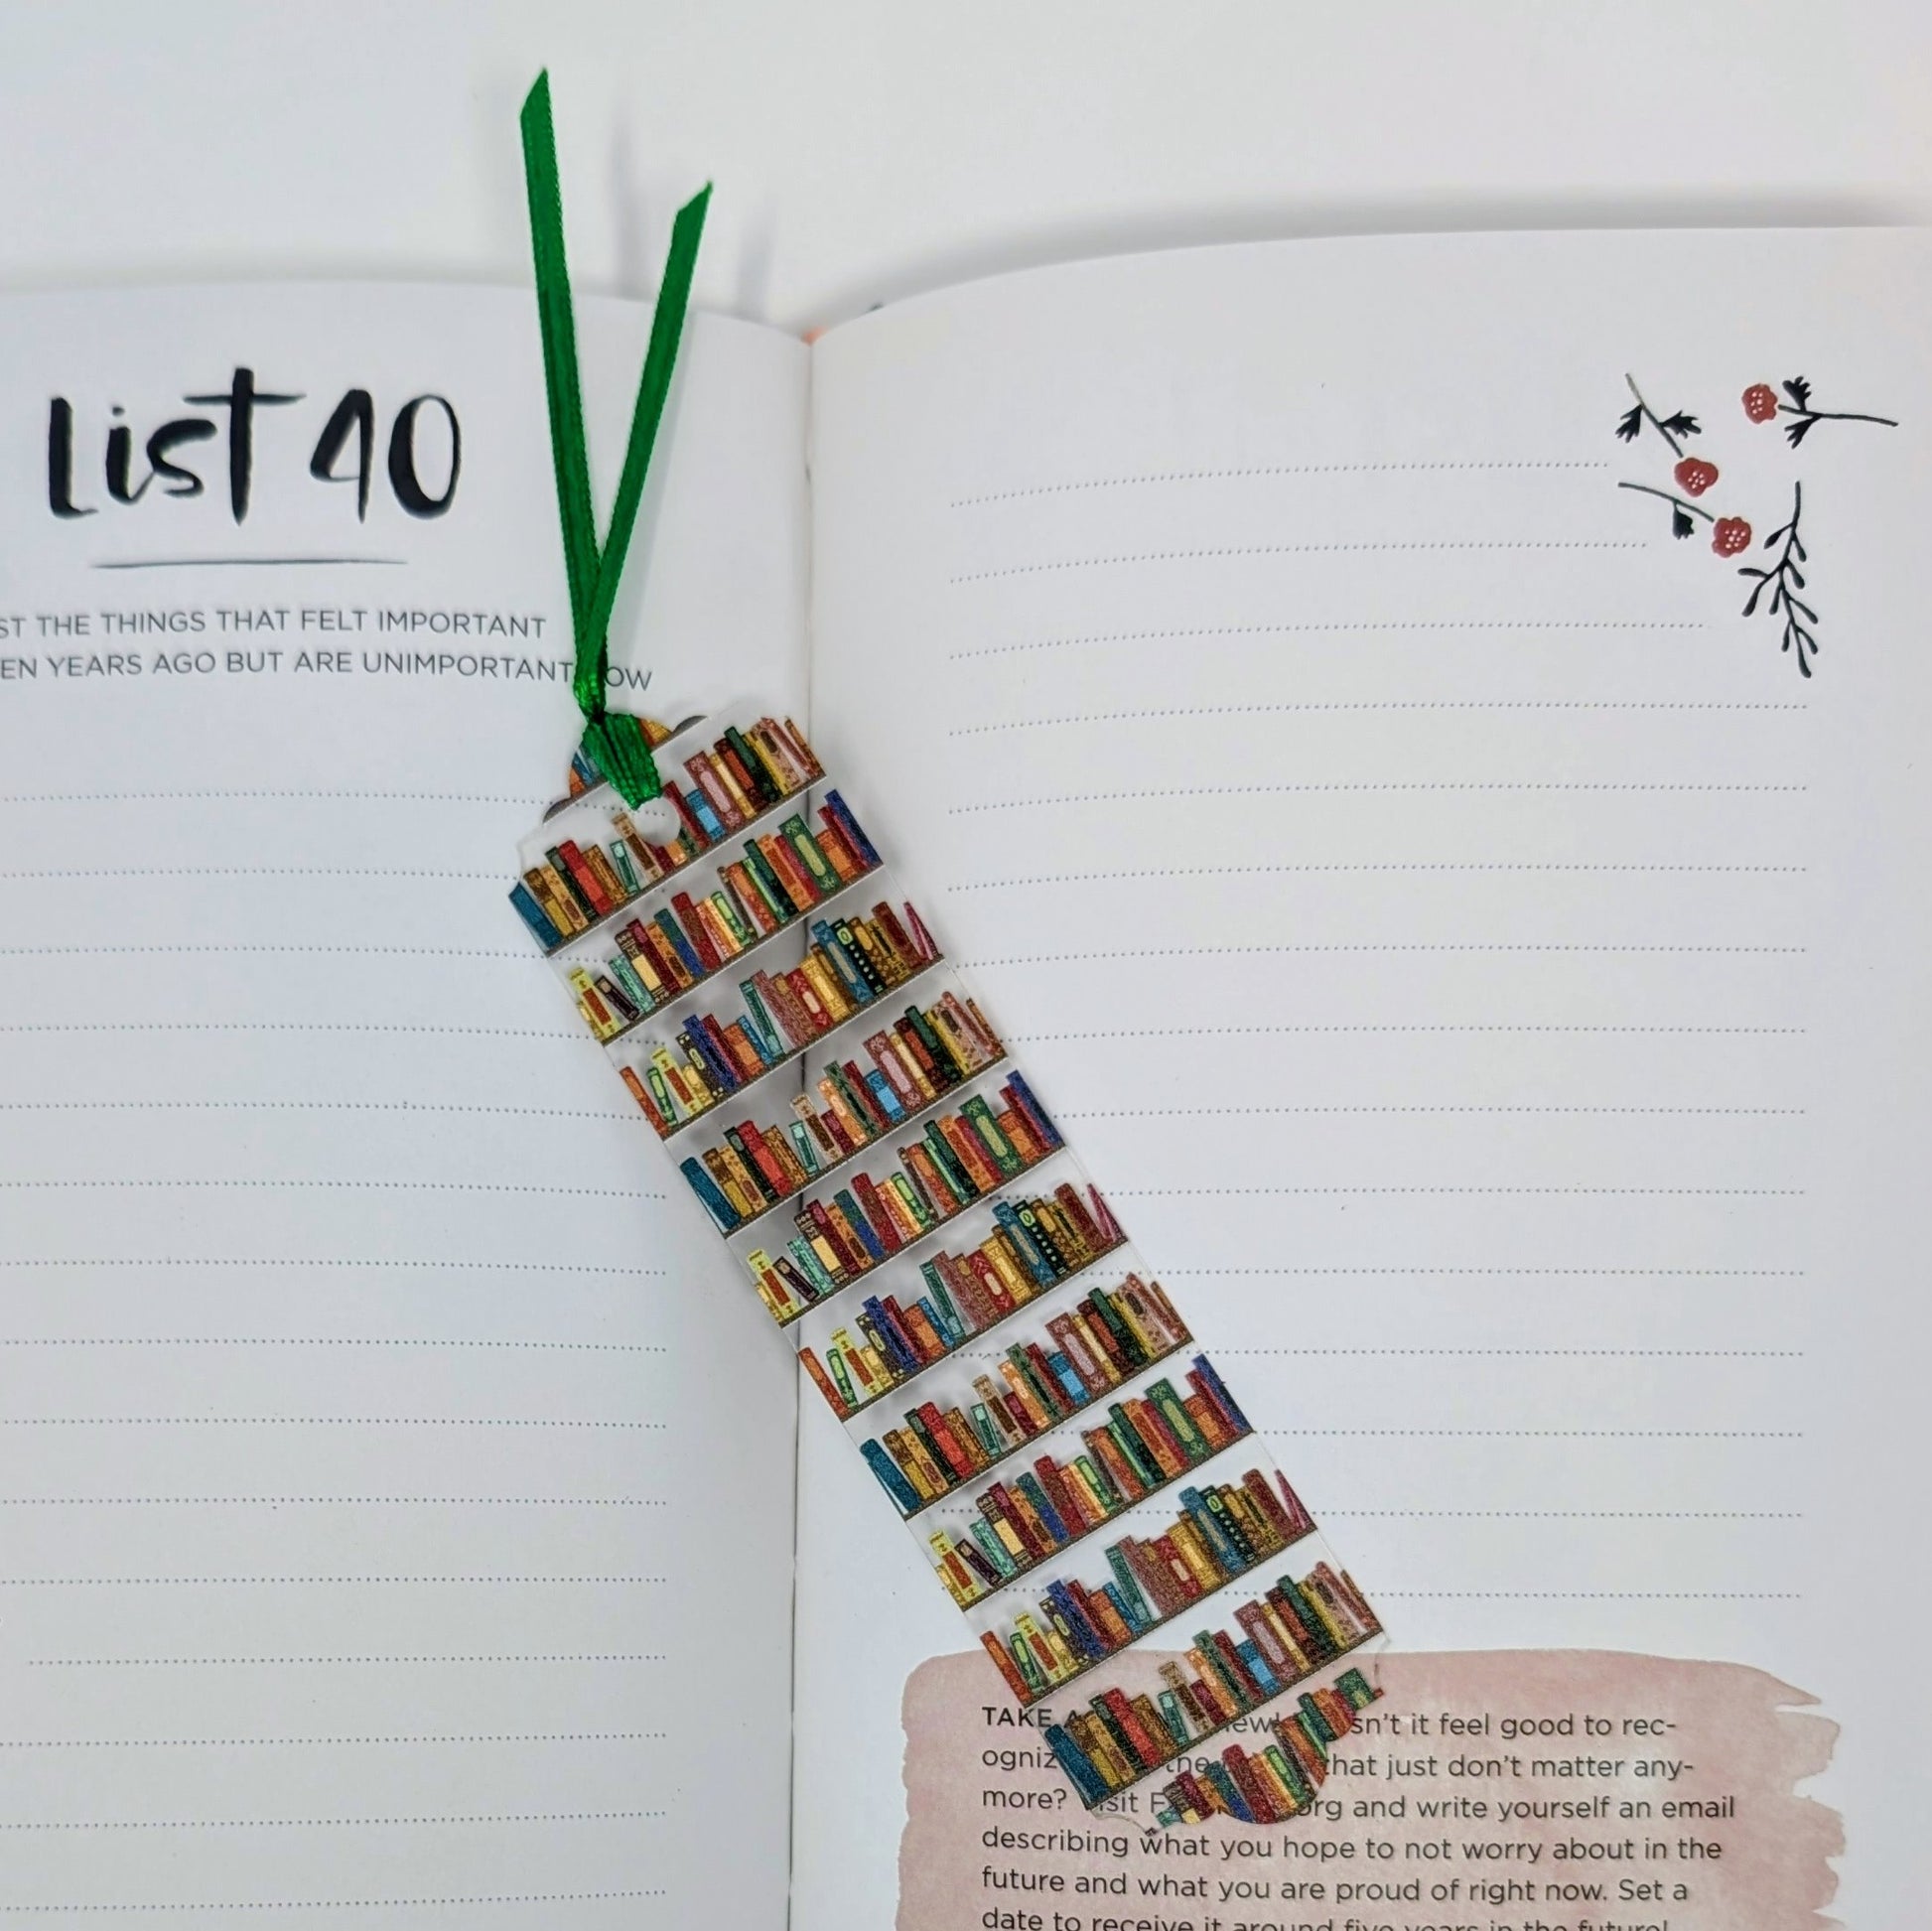 List 40
ST THE THINGS THAT FELT IMPORTANT
EN YEARS AGO BUT ARE UNIMPORTANT OW
TAKE new! sn't it feel good to rec-
ogniz the that just don't matter any-
more? isit F org and write yourself an email
describing what you hope to not worry about in the
future and what you are proud of right now. Set a
date to receive it around five years in the future!